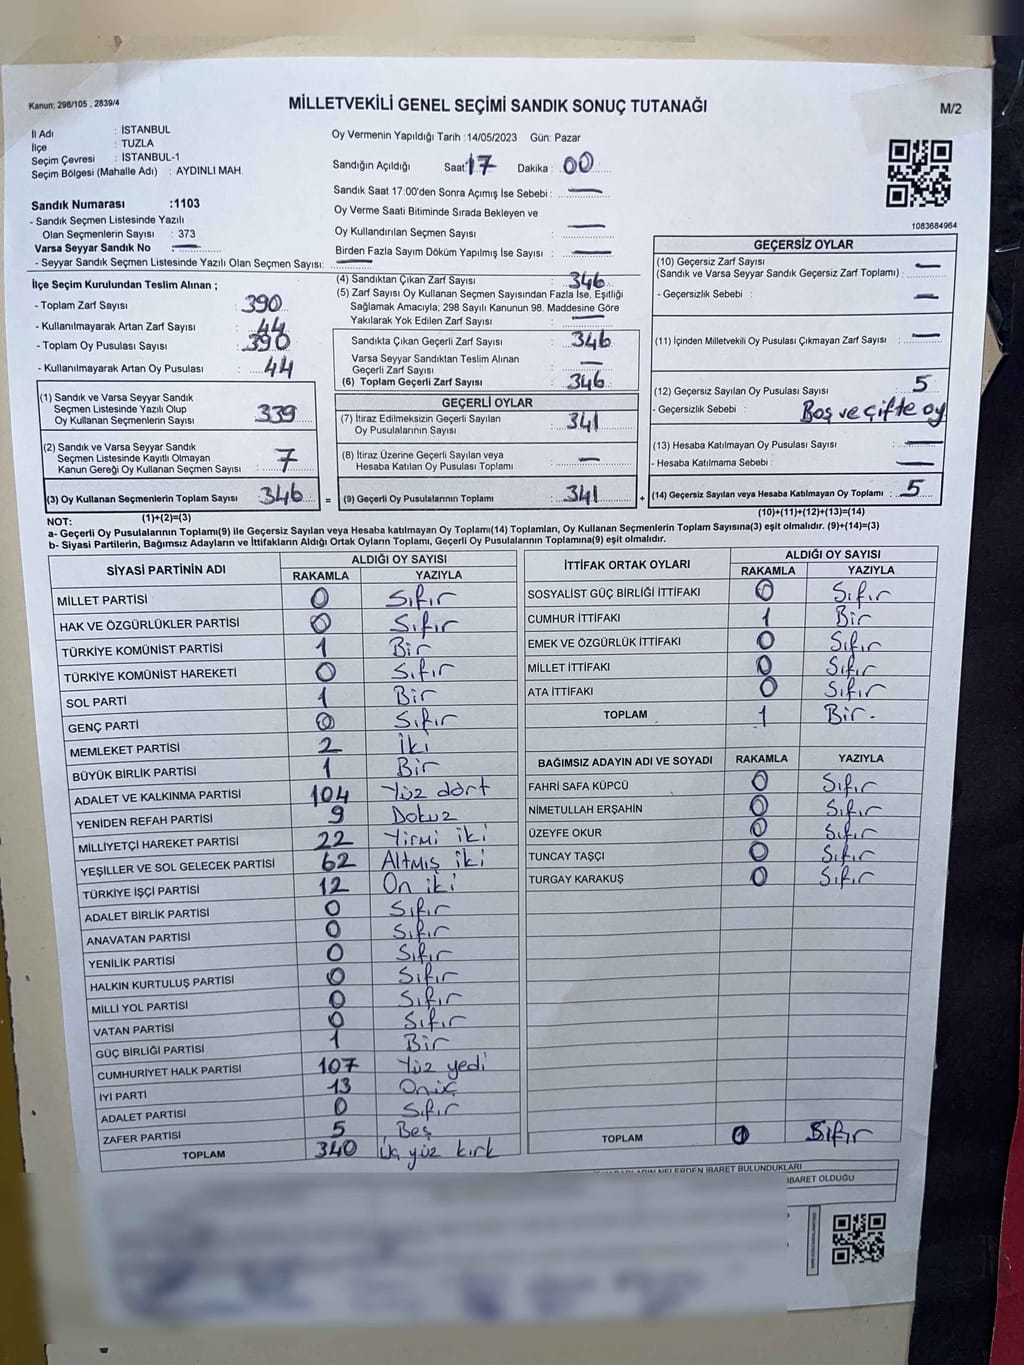 Kanun; 298/105 , 2839/4
MİLLETVEKİLİ GENEL SEÇİMİ SANDIK SONUÇ TUTANAĞI
M/2
İl Adı : İSTANBUL
İlçe : TUZLA
Seçim Çevresi : İSTANBUL-1
Seçim Bölgesi (Mahalle Adı) : AYDINLI MAH.
Oy Vermenin Yapıldığı Tarih : 14/05/2023 Gün: Pazar
Sandığın Açıldığı Saat 17 Dakika : 00
Sandık Saat 17:00'den Sonra Açımış İse Sebebi : —
Oy Verme Saati Bitiminde Sırada Bekleyen ve
Oy Kullandırılan Seçmen Sayısı : —
Birden Fazla Sayım Döküm Yapılmış İse Sayısı : —
1083684964
Sandık Numarası :1103
- Sandık Seçmen Listesinde Yazılı
Olan Seçmenlerin Sayısı : 373
Varsa Seyyar Sandık No : —
- Seyyar Sandık Seçmen Listesinde Yazılı Olan Seçmen Sayısı: —
İlçe Seçim Kurulundan Teslim Alınan ;
- Toplam Zarf Sayısı : 390
- Kullanılmayarak Artan Zarf Sayısı : 44
- Toplam Oy Pusulası Sayısı : 390
- Kullanılmayarak Artan Oy Pusulası : 44
(1) Sandık ve Varsa Seyyar Sandık
Seçmen Listesinde Yazılı Olup
Oy Kullanan Seçmenlerin Sayısı : 339
(2) Sandık ve Varsa Seyyar Sandık
Seçmen Listesinde Kayıtlı Olmayan
Kanun Gereği Oy Kullanan Seçmen Sayısı : 7
(3) Oy Kullanan Seçmenlerin Toplam Sayısı : 346
(1)+(2)=(3)
(4) Sandıktan Çıkan Zarf Sayısı : 346
(5) Zarf Sayısı Oy Kullanan Seçmen Sayısından Fazla İse, Eşitliği
Sağlamak Amacıyla; 298 Sayılı Kanunun 98. Maddesine Göre
Yakılarak Yok Edilen Zarf Sayısı : —
Sandıkta Çıkan Geçerli Zarf Sayısı : 346
Varsa Seyyar Sandıktan Teslim Alınan
Geçerli Zarf Sayısı : —
(6) Toplam Geçerli Zarf Sayısı : 346
GEÇERLİ OYLAR
(7) İtiraz Edilmeksizin Geçerli Sayılan
Oy Pusulalarının Sayısı : 341
(8) İtiraz Üzerine Geçerli Sayılan veya
Hesaba Katılan Oy Pusulası Toplamı : —
= (9) Geçerli Oy Pusulalarının Toplamı : 341
GEÇERSİZ OYLAR
(10) Geçersiz Zarf Sayısı
(Sandık ve Varsa Seyyar Sandık Geçersiz Zarf Toplamı) : —
- Geçersizlik Sebebi : —
(11) İçinden Milletvekili Oy Pusulası Çıkmayan Zarf Sayısı : —
(12) Geçersiz Sayılan Oy Pusulası Sayısı : 5
- Geçersizlik Sebebi : Boş ve çifte oy
(13) Hesaba Katılmayan Oy Pusulası Sayısı : —
- Hesaba Katılmama Sebebi : —
+ (14) Geçersiz Sayılan veya Hesaba Katılmayan Oy Toplamı : 5
(10)+(11)+(12)+(13)=(14)
NOT:
a- Geçerli Oy Pusulalarının Toplamı(9) ile Geçersiz Sayılan veya Hesaba katılmayan Oy Toplamı(14) Toplamları, Oy Kullanan Seçmenlerin Toplam Sayısına(3) eşit olmalıdır. (9)+(14)=(3)
b- Siyasi Partilerin, Bağımsız Adayların ve İttifakların Aldığı Ortak Oyların Toplamı, Geçerli Oy Pusulalarının Toplamına(9) eşit olmalıdır.
SİYASİ PARTİNİN ADI ALDIĞI OY SAYISI
RAKAMLA YAZIYLA
MİLLET PARTİSİ 0 Sıfır
HAK VE ÖZGÜRLÜKLER PARTİSİ 0 Sıfır
TÜRKİYE KOMÜNİST PARTİSİ 1 Bir
TÜRKİYE KOMÜNİST HAREKETİ 0 Sıfır
SOL PARTİ 1 Bir
GENÇ PARTİ 0 Sıfır
MEMLEKET PARTİSİ 2 İki
BÜYÜK BİRLİK PARTİSİ 1 Bir
ADALET VE KALKINMA PARTİSİ 104 Yüz dört
YENİDEN REFAH PARTİSİ 9 Dokuz
MİLLİYETÇİ HAREKET PARTİSİ 22 Yirmi iki
YEŞİLLER VE SOL GELECEK PARTİSİ 62 Altmış iki
TÜRKİYE İŞÇİ PARTİSİ 12 On iki
ADALET BİRLİK PARTİSİ 0 Sıfır
ANAVATAN PARTİSİ 0 Sıfır
YENİLİK PARTİSİ 0 Sıfır
HALKIN KURTULUŞ PARTİSİ 0 Sıfır
MİLLİ YOL PARTİSİ 0 Sıfır
VATAN PARTİSİ 0 Sıfır
GÜÇ BİRLİĞİ PARTİSİ 1 Bir
CUMHURİYET HALK PARTİSİ 107 Yüz yedi
İYİ PARTİ 13 Onüç
ADALET PARTİSİ 0 Sıfır
ZAFER PARTİSİ 5 Beş
TOPLAM 340 Üç yüz kırk
İTTİFAK ORTAK OYLARI ALDIĞI OY SAYISI
RAKAMLA YAZIYLA
SOSYALİST GÜÇ BİRLİĞİ İTTİFAKI 0 Sıfır
CUMHUR İTTİFAKI 1 Bir
EMEK VE ÖZGÜRLÜK İTTİFAKI 0 Sıfır
MİLLET İTTİFAKI 0 Sıfır
ATA İTTİFAKI 0 Sıfır
TOPLAM 1 Bir.
BAĞIMSIZ ADAYIN ADI VE SOYADI RAKAMLA YAZIYLA
FAHRİ SAFA KÜPCÜ 0 Sıfır
NİMETULLAH ERŞAHİN 0 Sıfır
ÜZEYFE OKUR 0 Sıfır
TUNCAY TAŞÇI 0 Sıfır
TURGAY KARAKUŞ 0 Sıfır
TOPLAM 0 Sıfır
NELERDEN İBARET BULUNDUKLARI
İBARET OLDUĞU